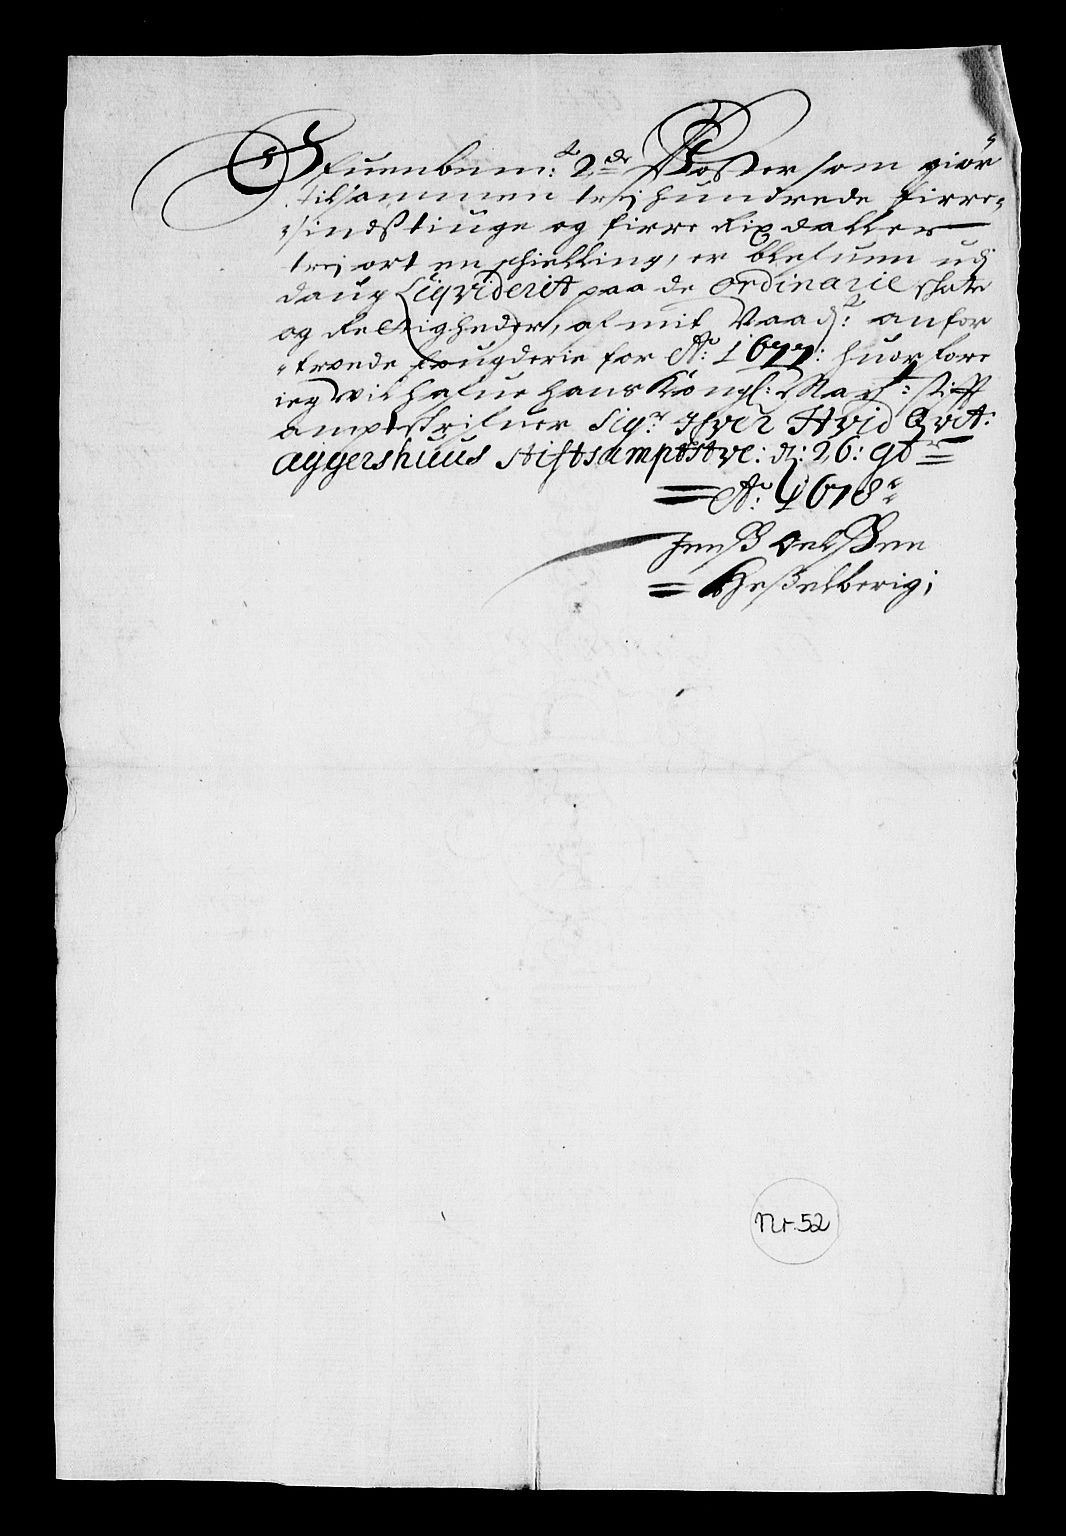 Ofuenbem:te 2de Poster som giør
tilsammen trej hundrede firre-
-sindstiuge og firre Rixdaller
trej ort en schielling, er blefuen udj
daug Liqviderit paa de ordinarie skatr
og Rettigheder, af mit Naad:t anfor
-troede fougderie for Ao: 1677: huor fore
ieg vil hafue hans Kongl: Mayt: stifft
amptskrifuer Sigr Ifver Hvid Qvit:
aggershuus stiftsamptstve: d: 26: 9br
Ao: 1678
Jenß Oelßen
Heßelberig;
Nr. 52